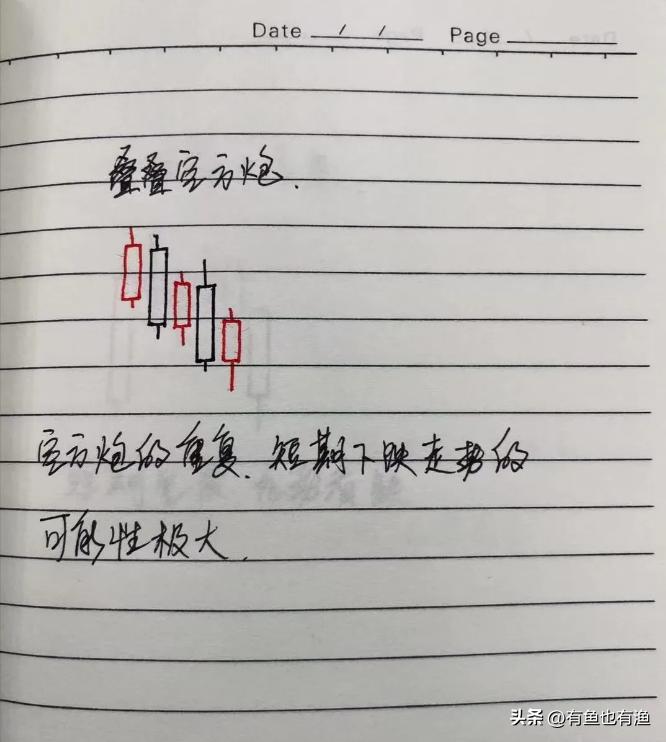 Date / / Page
叠叠空方炮.
空方炮的重复.短期下跌走势的
可能性极大.
头条 @有鱼也有渔